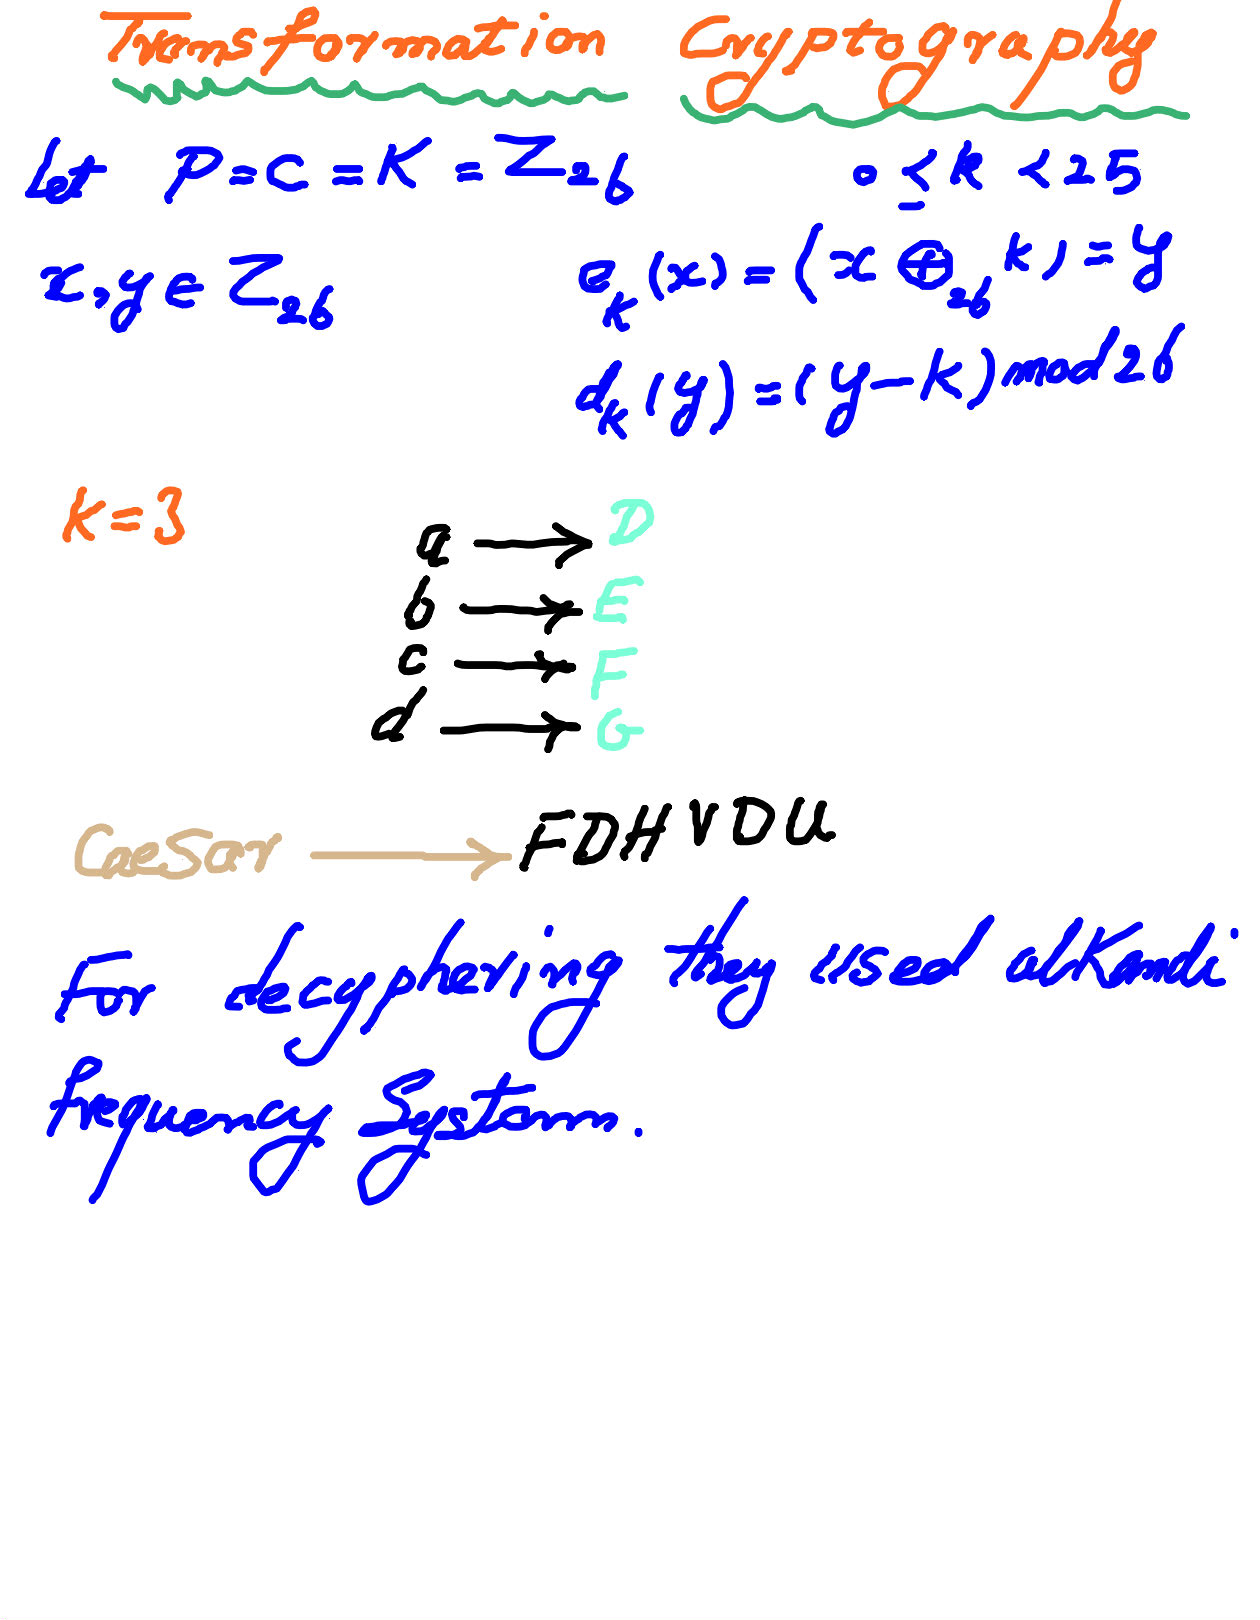 Transformation Cryptography
Let P = C = K = Z₂₆ 0 ≤ k < 25
x, y ∈ Z₂₆ eₖ(x) = (x ⊕₂₆ k) = y
dₖ(y) = (y - k) mod 26
K = 3
a → D
b → E
c → F
d → G
Caesar → FDHVDU
For decyphering they used alKandi
frequency System.